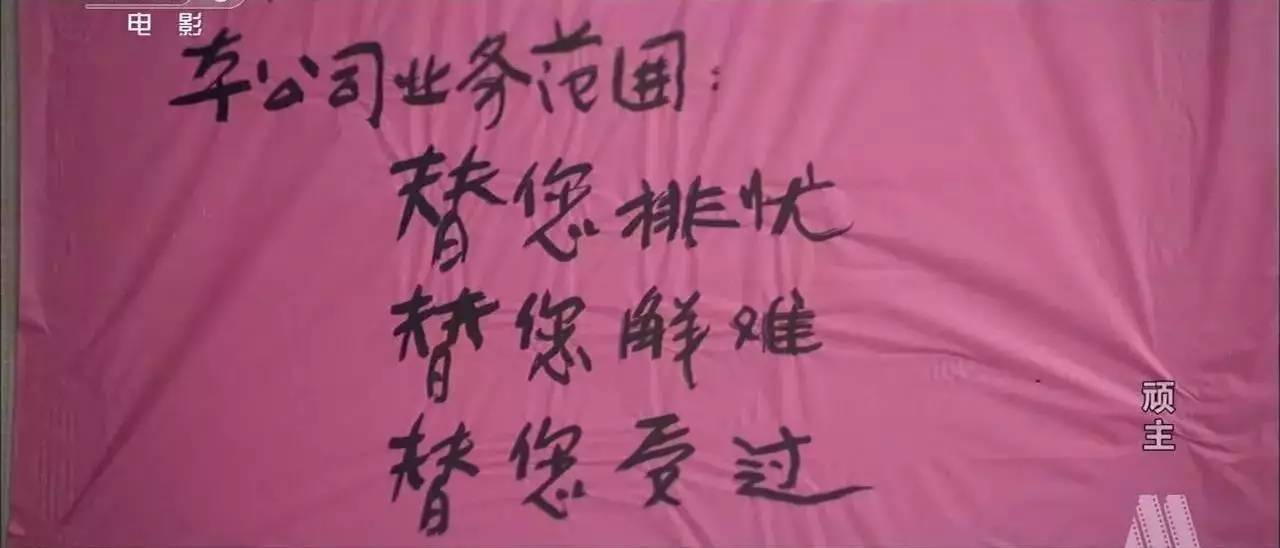 电影
本公司业务范围：
替您排忧
替您解难
替您受过
顽主